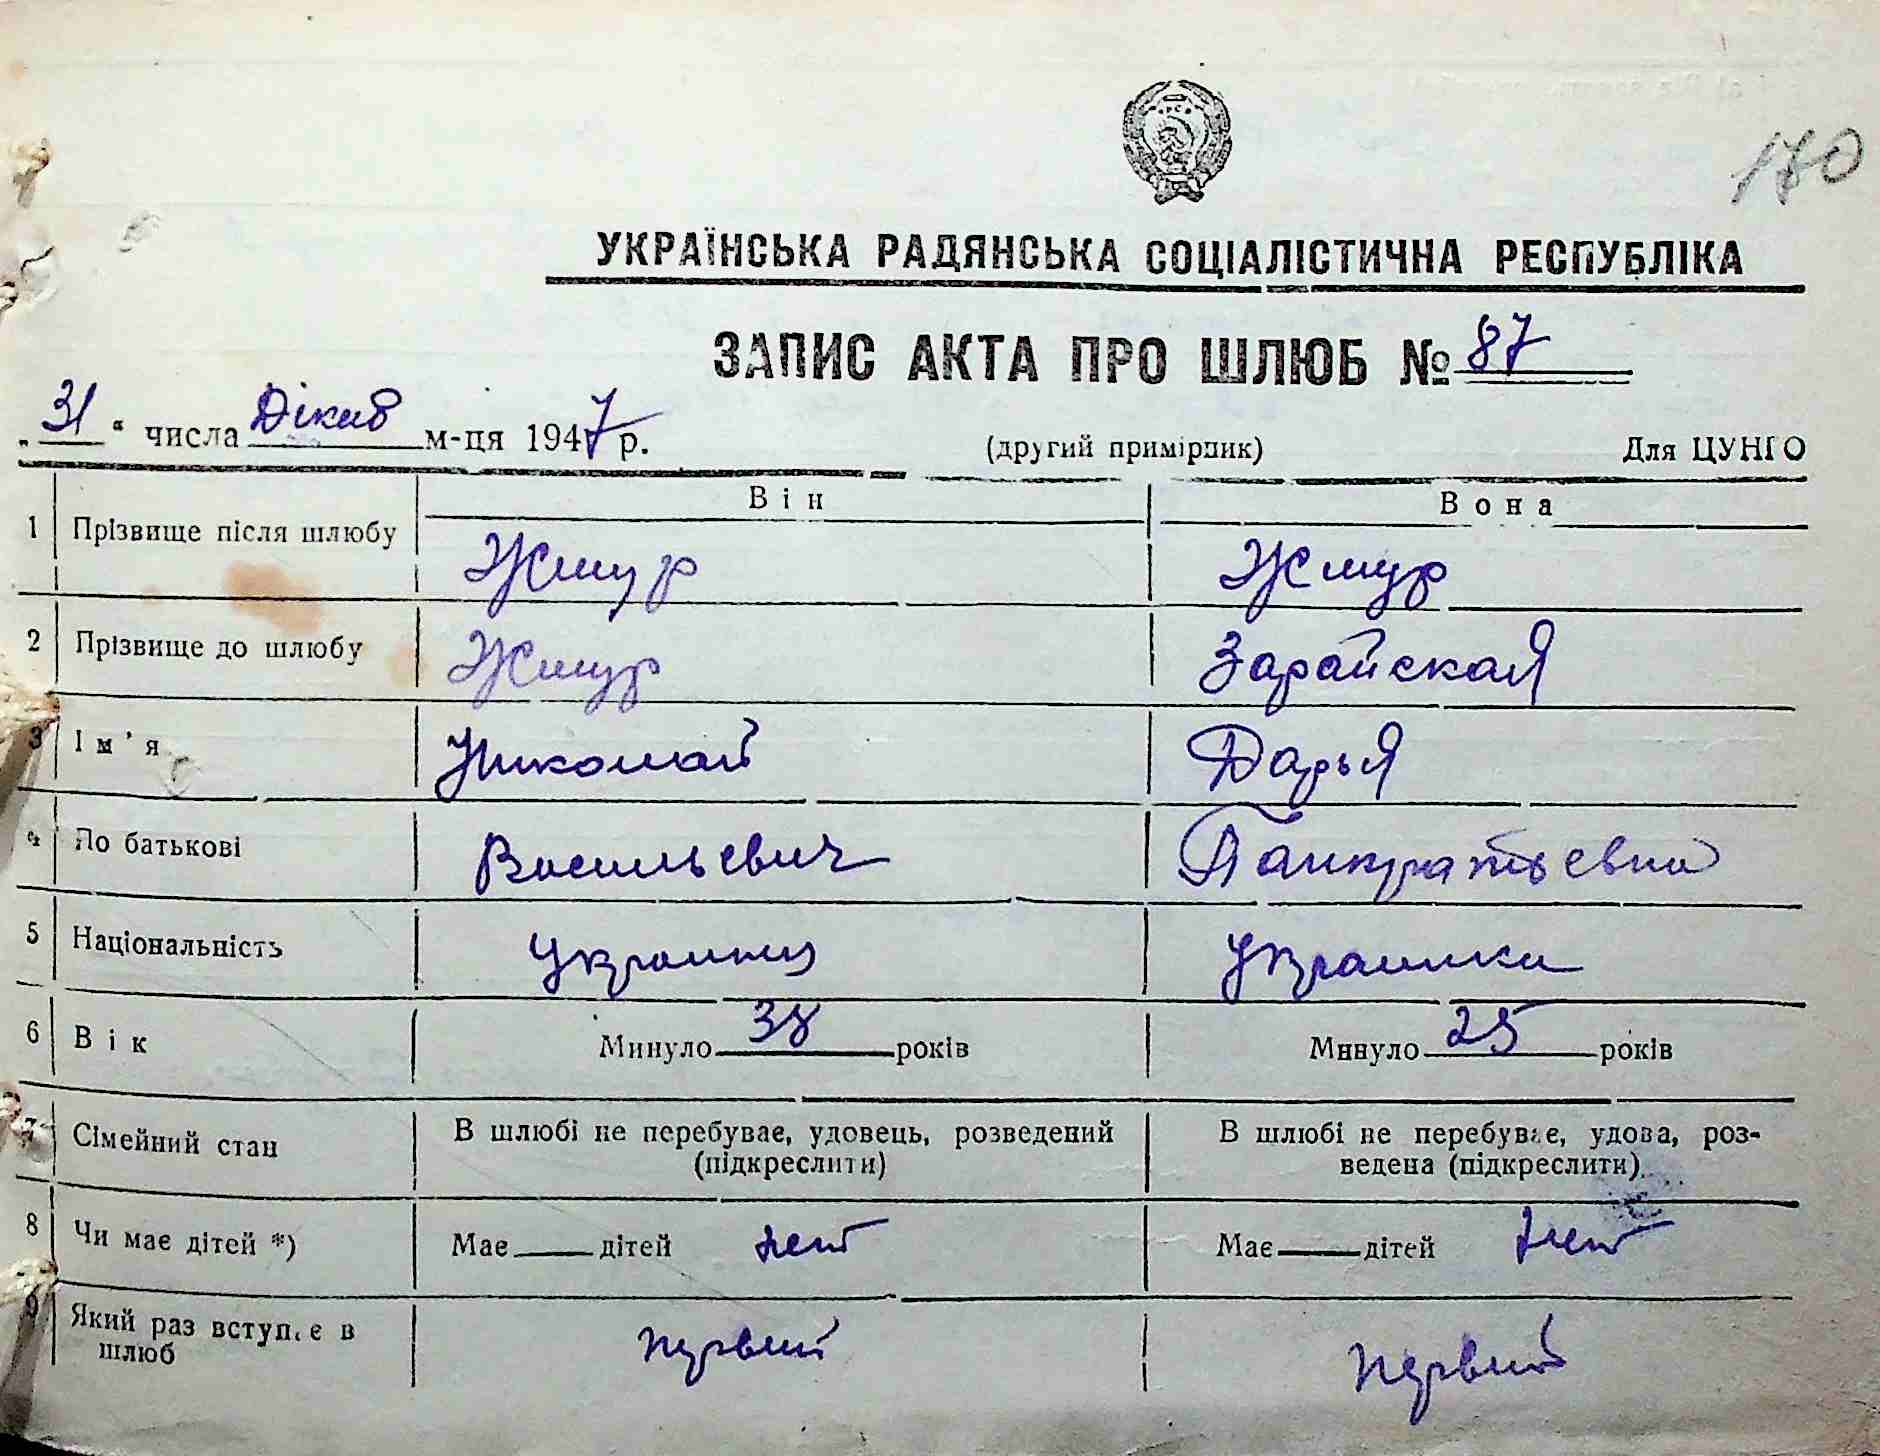 170
УКРАЇНСЬКА РАДЯНСЬКА СОЦІАЛІСТИЧНА РЕСПУБЛІКА
ЗАПИС АКТА ПРО ШЛЮБ № 87
„31“ числа Дікаб м-ця 1947 р. (другий примірник) Для ЦУНГО
Він Вона
1 Прізвище після шлюбу Жмур Жмур
2 Прізвище до шлюбу Жмур Зарайская
3 Ім'я Николай Дарья
4 По батькові Васильевич Панкратьевна
5 Національність Украинец Украинка
6 Вік Минуло 38 років Минуло 25 років
7 Сімейний стан В шлюбі не перебуває, удовець, розведений В шлюбі не перебуває, удова, роз-
(підкреслити) ведена (підкреслити)
8 Чи має дітей *) Має дітей нет Має дітей нет
9 Який раз вступає в первий первий
шлюб